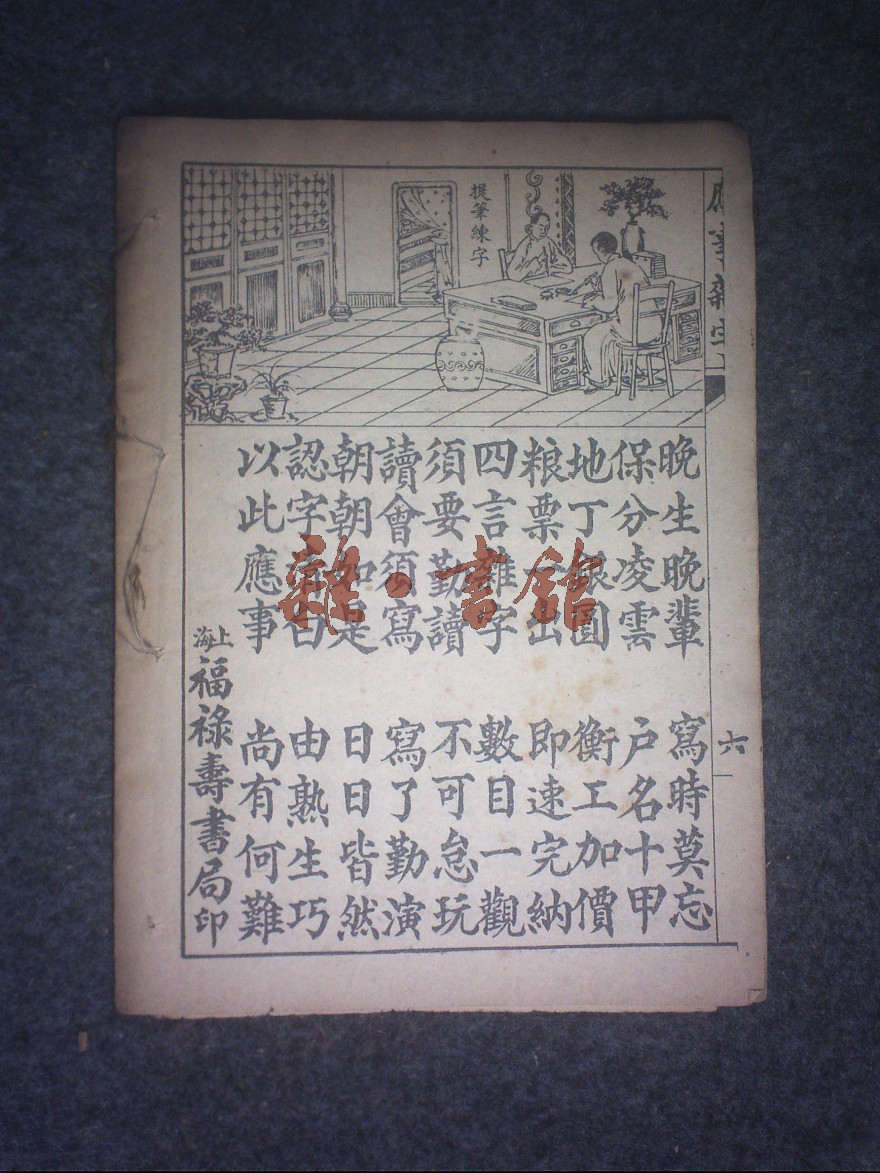 提筆練字
晚生晚輩 寫時莫忘
保分凌雲 户名十甲
地丁銀圓 衡工加價
粮票一出 即速完納
四言雜字 數目一觀
須要勤讀 不可怠玩
讀會須寫 寫了勤演
朝朝如是 日日皆然
認字清白 由熟生巧
以此應事 尚有何難
上海福祿壽書局印
六
雜·書館